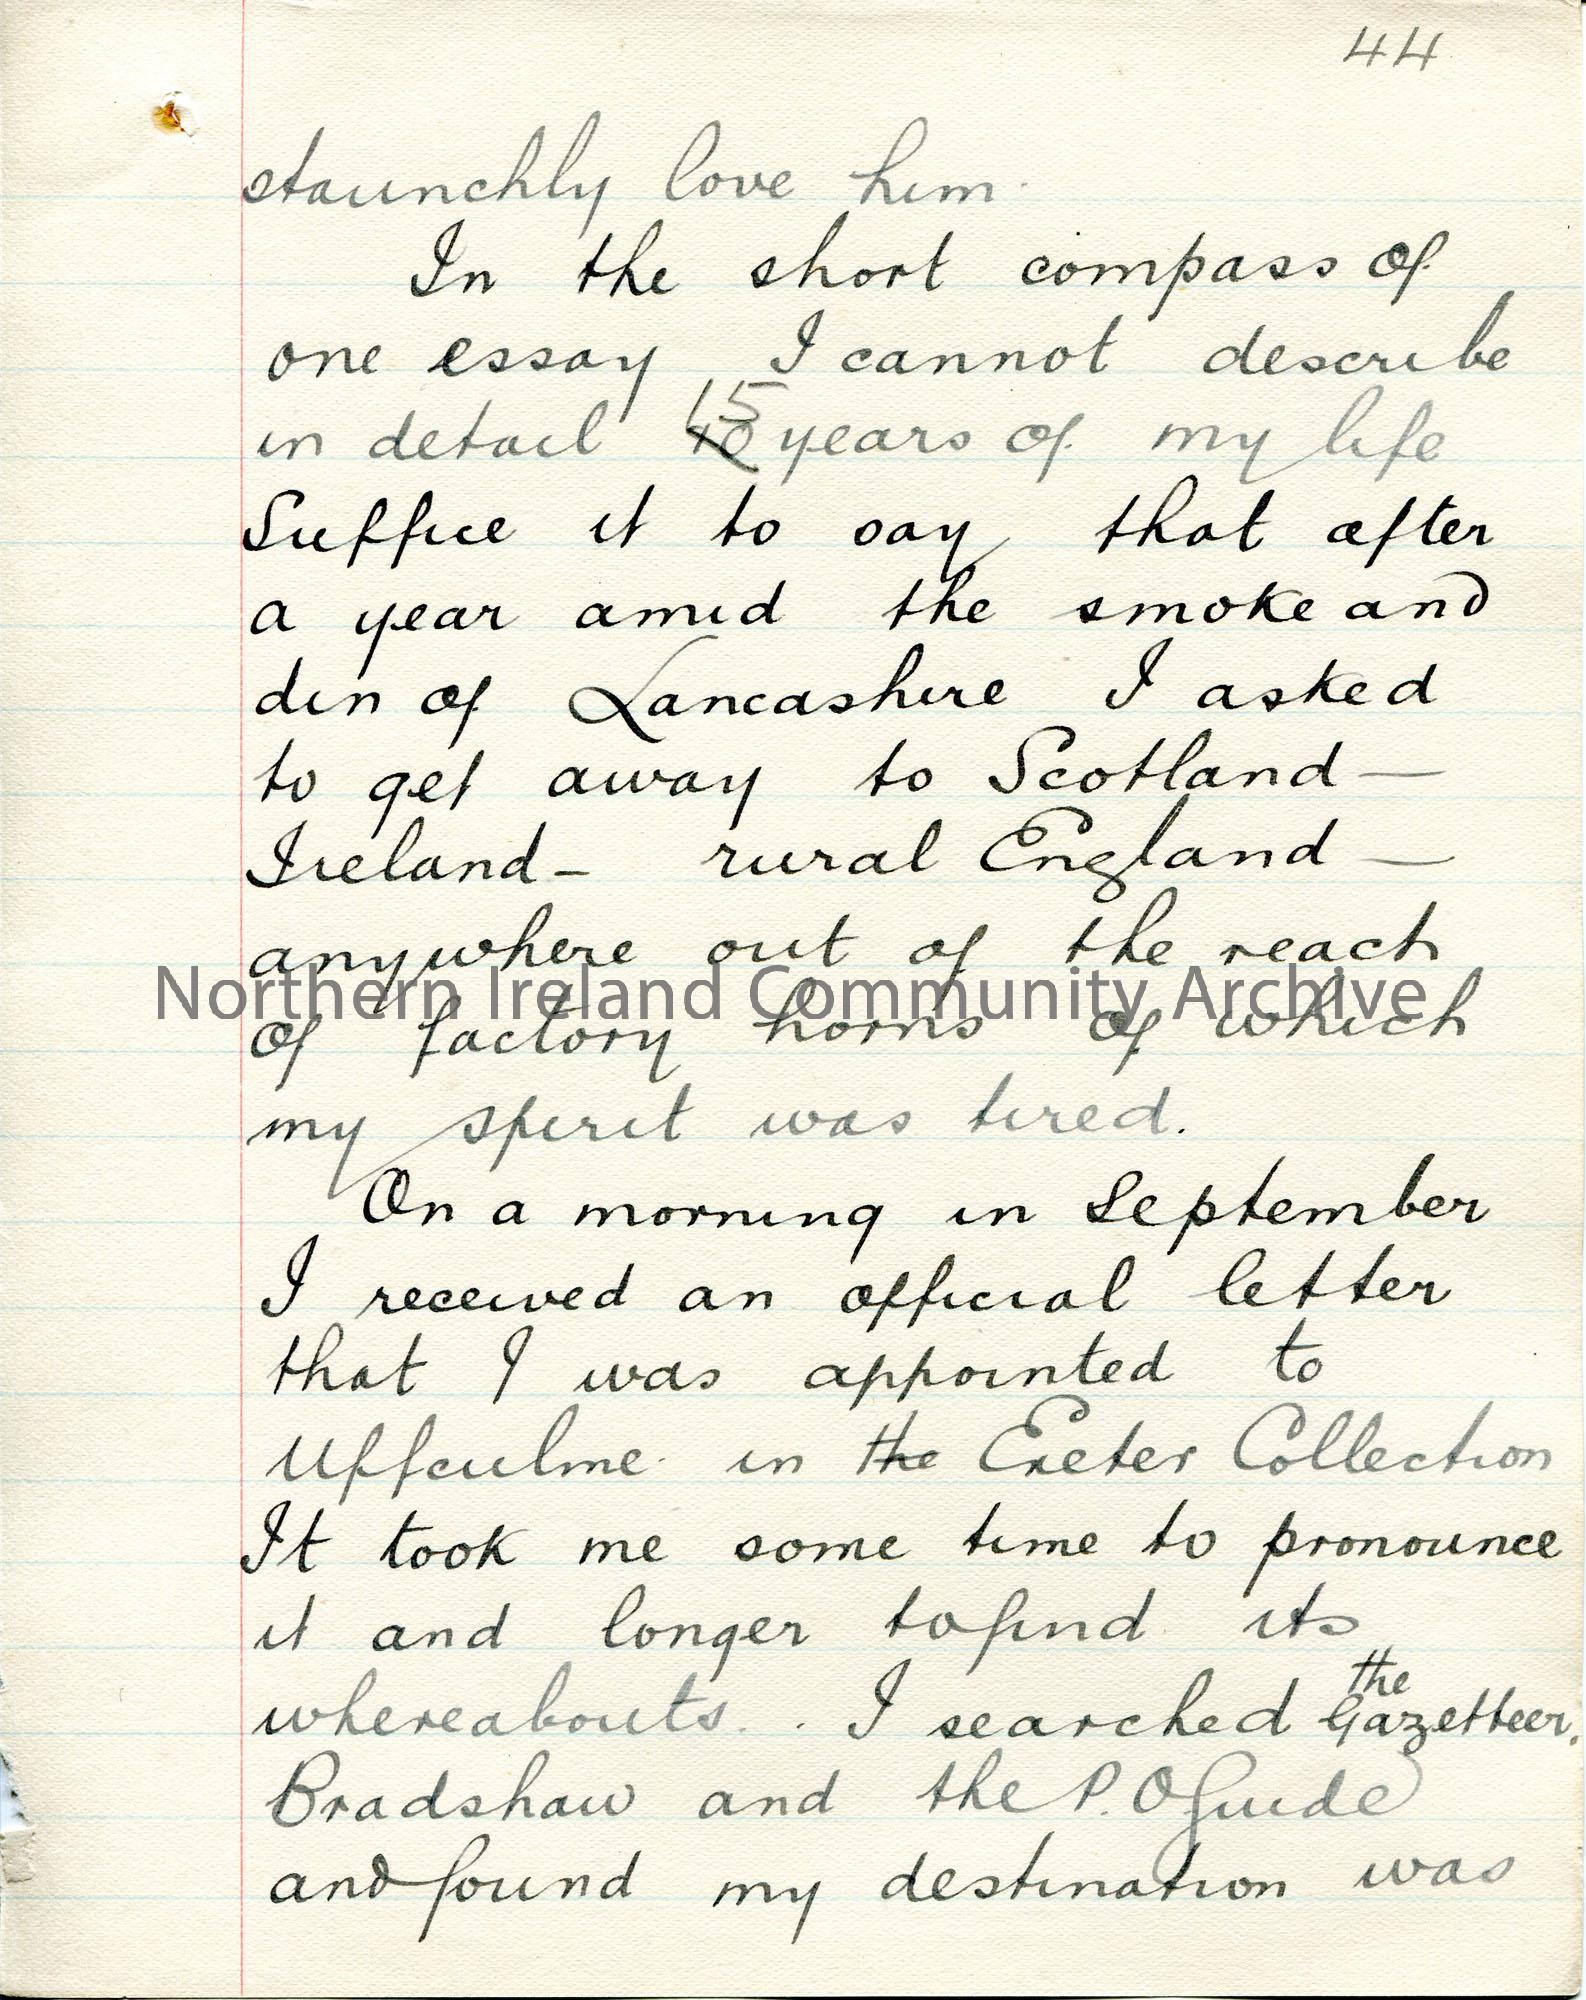 44
staunchly love him.
In the short compass of
one essay I cannot describe
in detail 15 years of my life
Suffice it to say that after
a year amid the smoke and
din of Lancashire I asked
to get away to Scotland —
Ireland — rural England —
anywhere out of the reach
Northern Ireland Community Archive
of factory horns of which
my spirit was tired.
On a morning in September
I received an official letter
that I was appointed to
Uffculme in the Exeter Collection
It took me some time to pronounce
it and longer to find its
whereabouts. . I searched the Gazetteer.
Bradshaw and the P.O Guide
and found my destination was